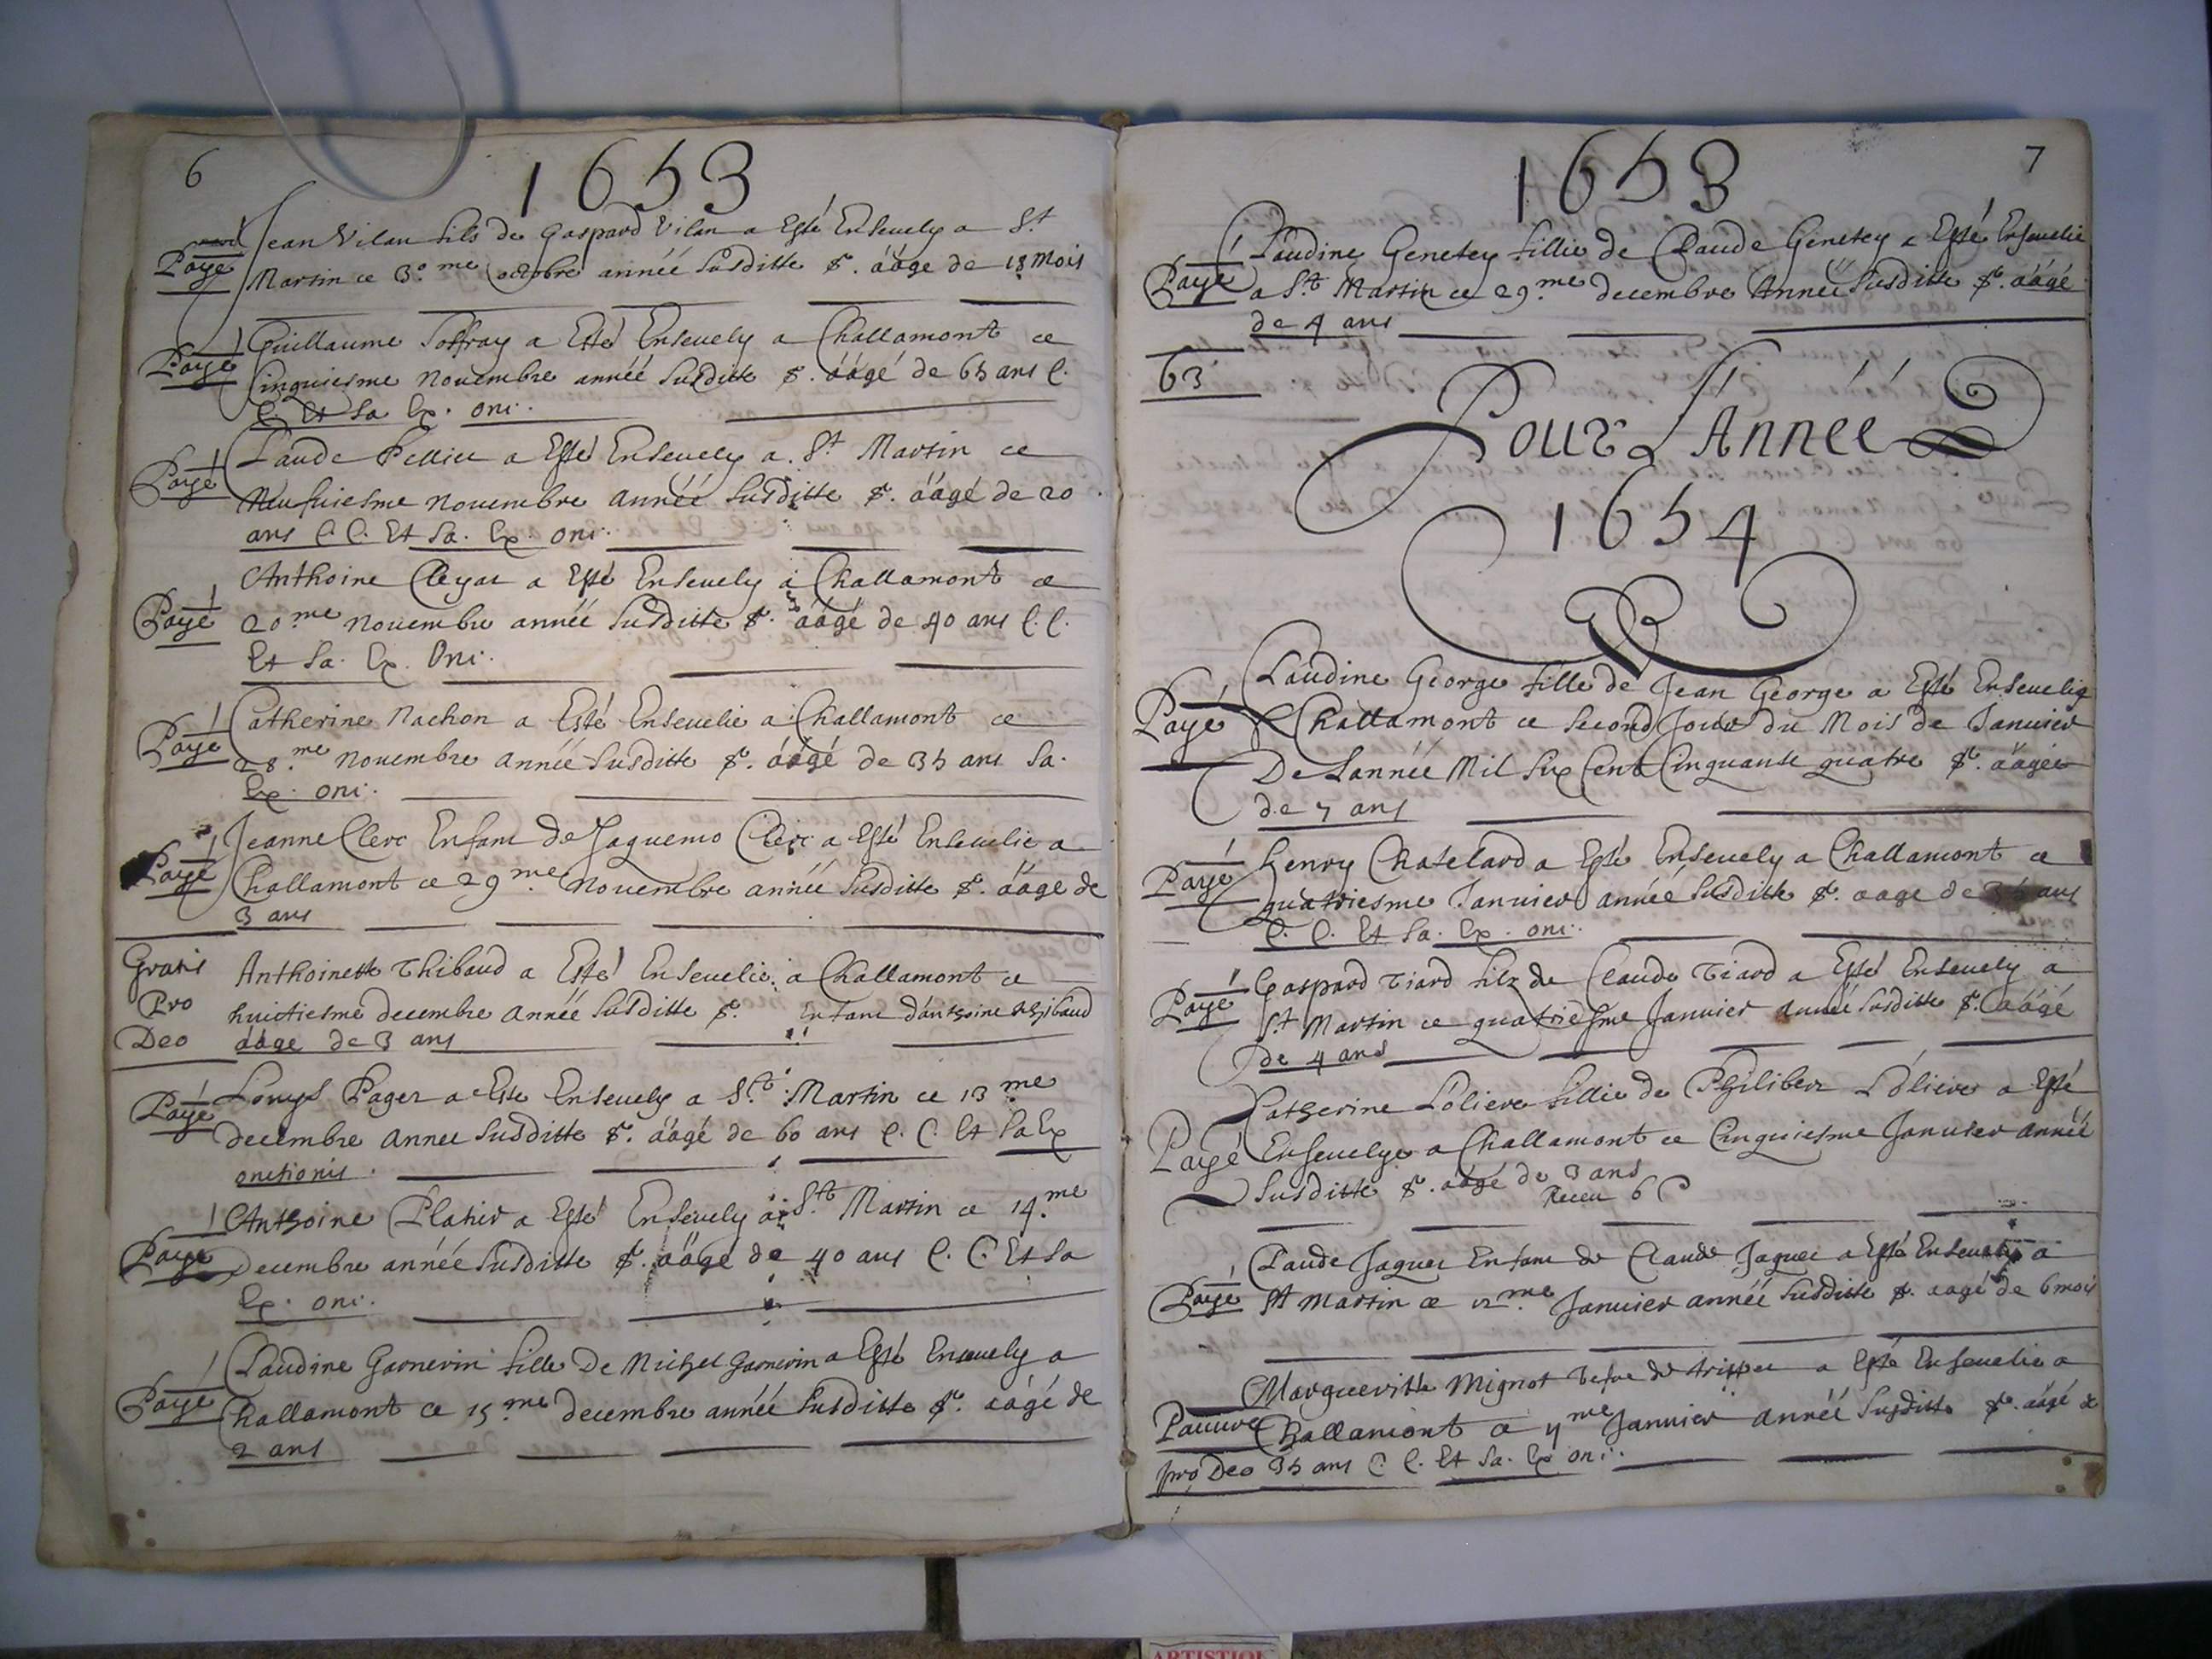 6
1653
Payé
Jean Vilan fils de Gaspard Vilan a Esté Enseuely a St
Martin ce 30me octobre année susditte &. ââge de 18 mois
Payé
Guillaume Soffray a Esté Enseuely a Challamont ce
Cinquiesme Nouembre année susditte &. âagé de 65 ans C.
C. Et sa Ex. oni.
Payé
Claude Pellier a Esté Enseuely a St Martin ce
Neufuiesme Nouembre année susditte &. âagé de 20
ans C.C. Et sa. Ex. oni.
Payé
Anthoine Cleyat a Esté Enseuely a Challamont ce
20.me Nouembre année susditte &. âagé de 40 ans C.C.
Et sa. Ex. Oni.
Payé
Catherine Nachon a Esté Enseuelie a Challamont ce
28.me Nouembre année susditte &. âagé de 35 ans sa.
Ex. oni.
Payé
Jeanne Clerc Enfant de Jaquemo Clerc a Esté Enseuelie a
Challamont ce 29.me Nouembre année susditte &. ââge de
3 ans
Gratis
Pro
Deo
Anthoinette Thibaud a Esté Enseuelie a Challamont ce
huictiesme decembre année susditte &. Enfant d'anthoine thibaud
ââge de 3 ans
Payé
Louys Pager a Este Enseuely a St. Martin ce 13.me
decembre Annee susditte &. âagé de 60 ans C.C. Et sa Ex
onctionis.
Payé
Anthoine Platier a Esté Enseuely a St Martin ce 14.me
Decembre année susditte &. âagé de 40 ans C. C. Et sa
Ex. oni.
Payé
Claudine Garnerin fille De Michel Garnerin a Esté Enseuely a
Challamont ce 15.me decembre année susditte &. âagé de
2 ans
7
1653
Payé
Claudine Genetey fillie de Claude Genetey a Esté Enseuelie
a St. Martin ce 29.me decembre Année susditte &. âagé
de 4 ans
63
Pour L'Année
1654
Payé
Claudine George fille de Jean George a Esté Enseuelie
a Challamont ce second Jour du Mois de Januier
De Lannée Mil six Cent Cinquante quatre &. âagée
de 7 ans
Payé
Henry Chatelard a Esté Enseuely a Challamont ce
quatriesme Januier année susditte &. aage de 35 ans
C. C. Et sa. Ex. oni.
Payé
Gaspard Tiard filz de Claude Tiard a Esté Enseuely a
St Martin ce quatriesme Januier année susditte &. âagé
de 4 ans
Payé
Catherine Loliere fillie de Philiber Loliere a Esté
Enseuelye a Challamont ce Cinquiesme Januier année
susditte &. âagé de 3 ans
Receu 6
Payé
Claude Jaquet Enfant de Claude Jaquet a Esté Enseuely a
St Martin ce 12.me Januier année susditte &. aagé de 6 mois
Pauure
pro Deo
Margueritte Mignot Vefue de a Esté Enseuelie a
Challamont ce Januier année susditte &. âagé de
35 ans C. C. Et sa. Ex oni.
ARTISTIQU